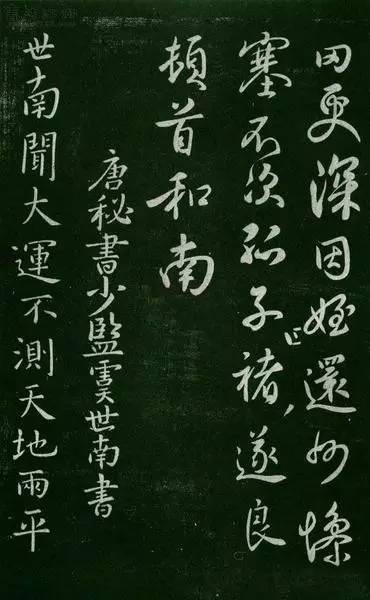 田更深因姪還州慘
塞不次孤子褚遂良
頓首和南
唐秘書少監虞世南書
世南聞大運不測天地兩平